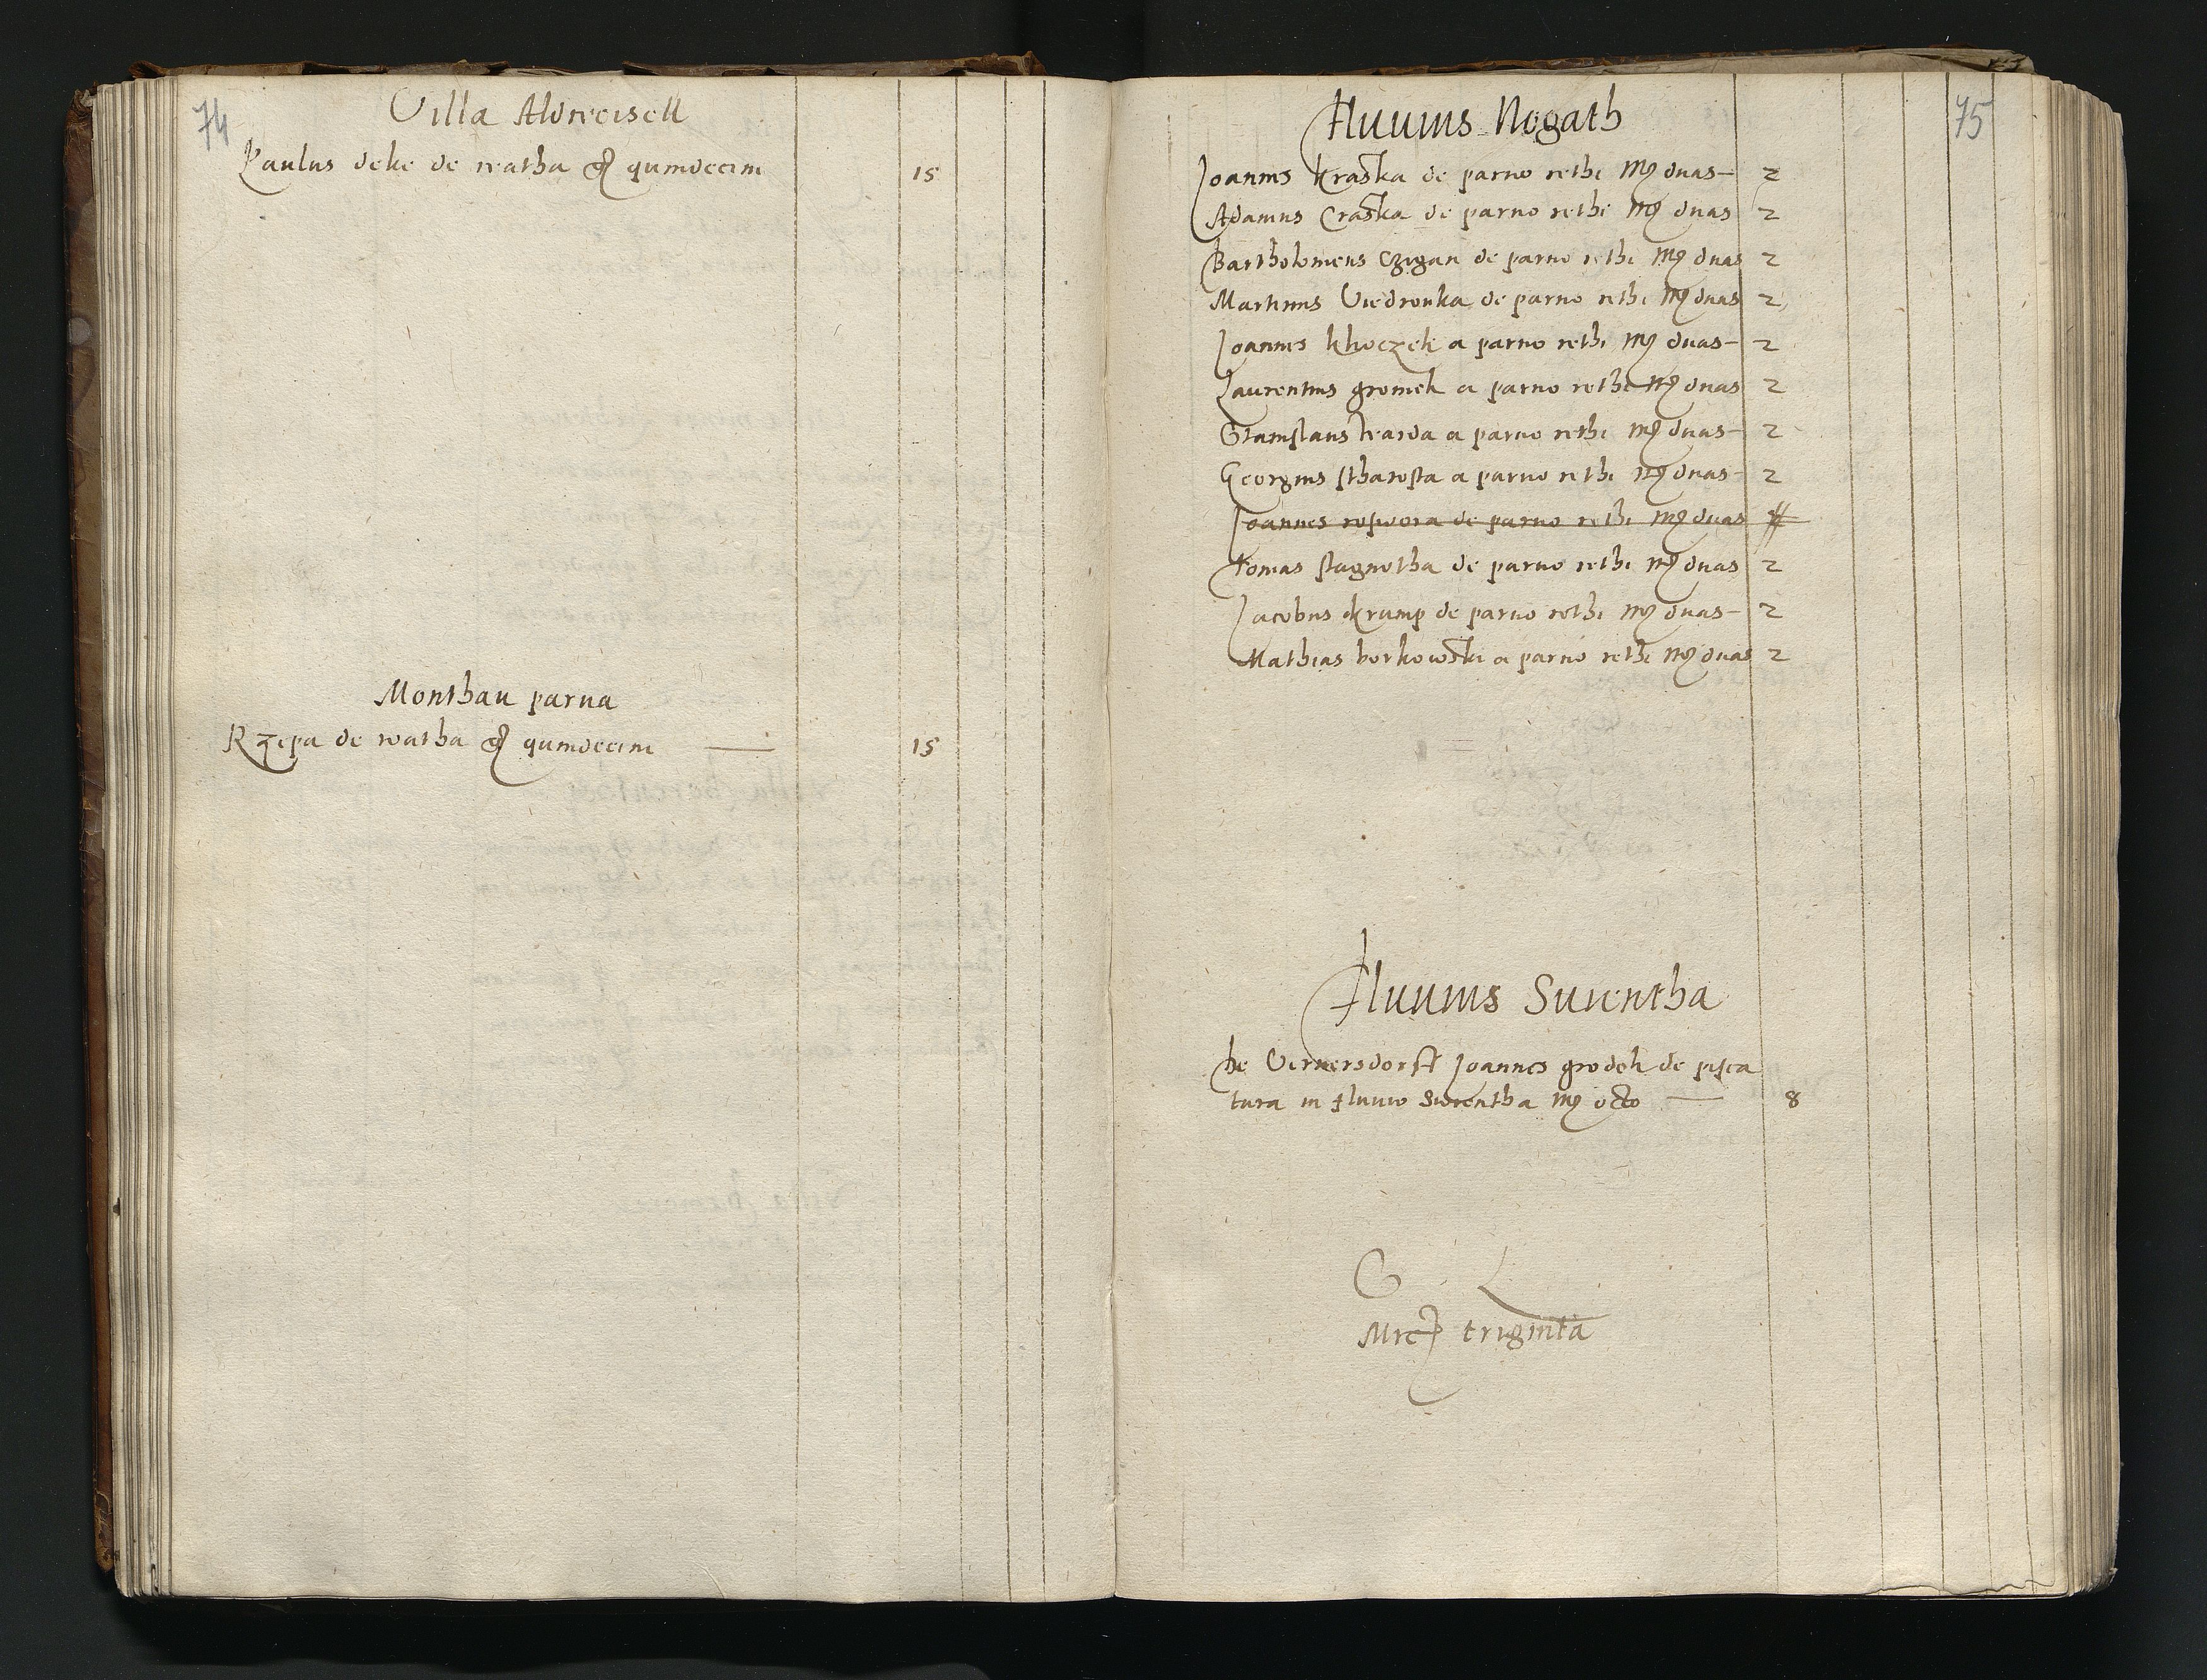 74
Villa Aldweisell
Paulus deke de watha gr quindecim 15
Monthau parva
Rzepa de watha gr quindecim — 15
75
Fluvius Nogath
Joannes kraska de parvo rethi mr duas – 2
Adamus Craska de parvo rethi mr duas 2
Bartholomeus Czigan de parvo rethi mr duas 2
Martinus Viedronka de parvo rethi mr duas 2
Joannes khoczek a parvo rethi mr duas – 2
Laurentius gromek a parvo rethi mr duas 2
Stanislaus twarda a parvo rethi mr duas – 2
Georgius stharosta a parvo rethi mr duas – 2
Joannes rospora de parvo rethi mr duas
Tomas stagnotha de parvo rethi mr duas 2
Jacobus krump de parvo rethi mr duas – 2
Mathias borkowski a parvo rethi mr duas 2
Fluvius Swentha
De Vernersdorff Joannes grodek de pisca
tura in fluvio Swentha mr octo — 8
G L
Mrc triginta